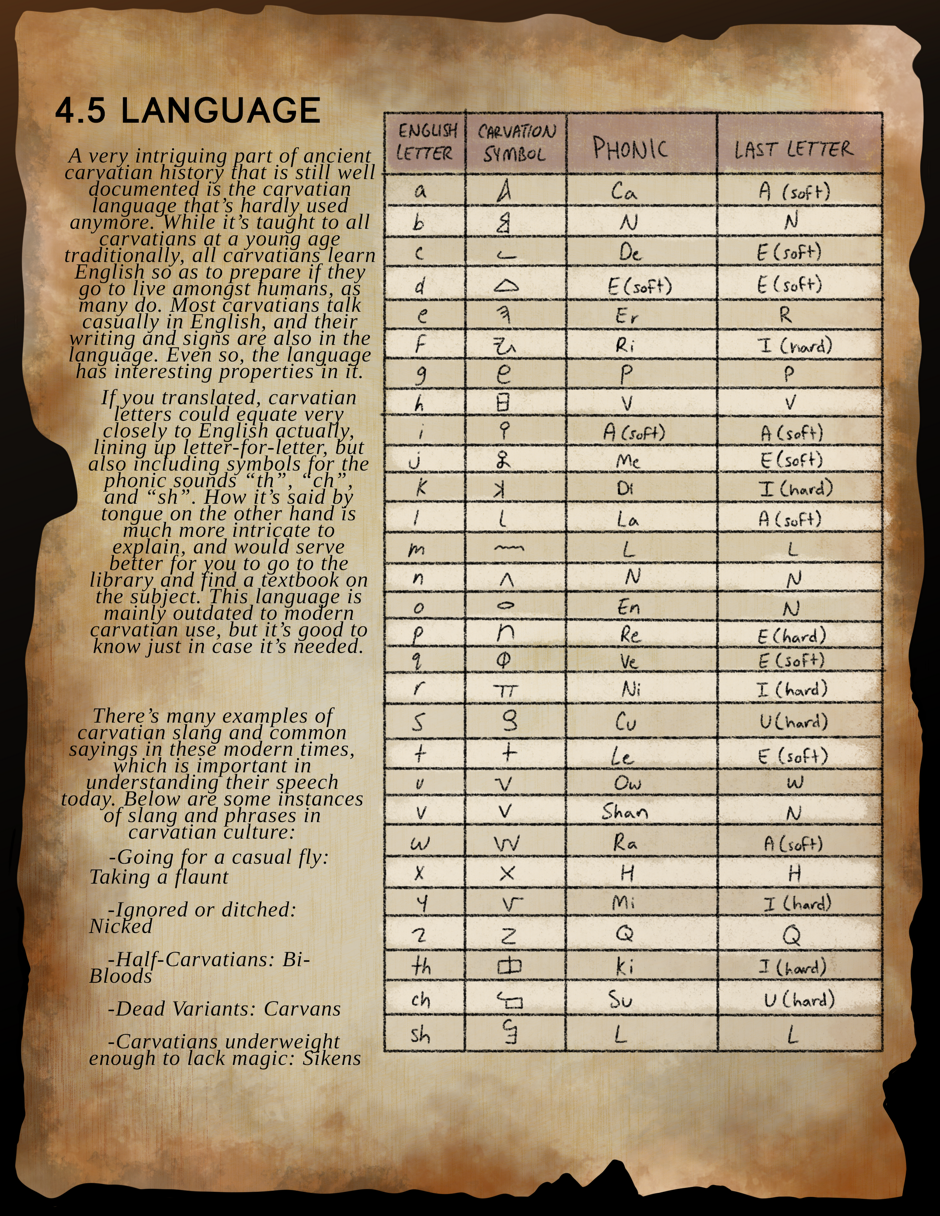 4.5 LANGUAGE
A very intriguing part of ancient
carvatian history that is still well
documented is the carvatian
language that's hardly used
anymore. While it's taught to all
carvatians at a young age
traditionally, all carvatians learn
English so as to prepare if they
go to live amongst humans, as
many do. Most carvatians talk
casually in English, and their
writing and signs are also in the
language. Even so, the language
has interesting properties in it.
If you translated, carvatian
letters could equate very
closely to English actually,
lining up letter-for-letter, but
also including symbols for the
phonic sounds “th”, “ch”,
and “sh”. How it's said by
tongue on the other hand is
much more intricate to
explain, and would serve
better for you to go to the
library and find a textbook on
the subject. This language is
mainly outdated to modern
carvatian use, but it's good to
know just in case it's needed.
There's many examples of
carvatian slang and common
sayings in these modern times,
which is important in
understanding their speech
today. Below are some instances
of slang and phrases in
carvatian culture:
-Going for a casual fly:
Taking a flaunt
-Ignored or ditched:
Nicked
-Half-Carvatians: Bi-
Bloods
-Dead Variants: Carvans
-Carvatians underweight
enough to lack magic: Sikens
ENGLISH LETTER CARVATION SYMBOL PHONIC LAST LETTER
a Ca A (soft)
b N N
c De E (soft)
d E (soft) E (soft)
e Er R
f Ri I (hard)
g P P
h V V
i A (soft) A (soft)
j Me E (soft)
k Di I (hard)
l La A (soft)
m L L
n N N
o En N
p Re E (hard)
q Ve E (soft)
r Ni I (hard)
s Cu U (hard)
t Le E (soft)
u Ow W
v Shan N
w Ra A (soft)
x H H
y Mi I (hard)
z Q Q
th Ki I (hard)
ch Su U (hard)
sh L L